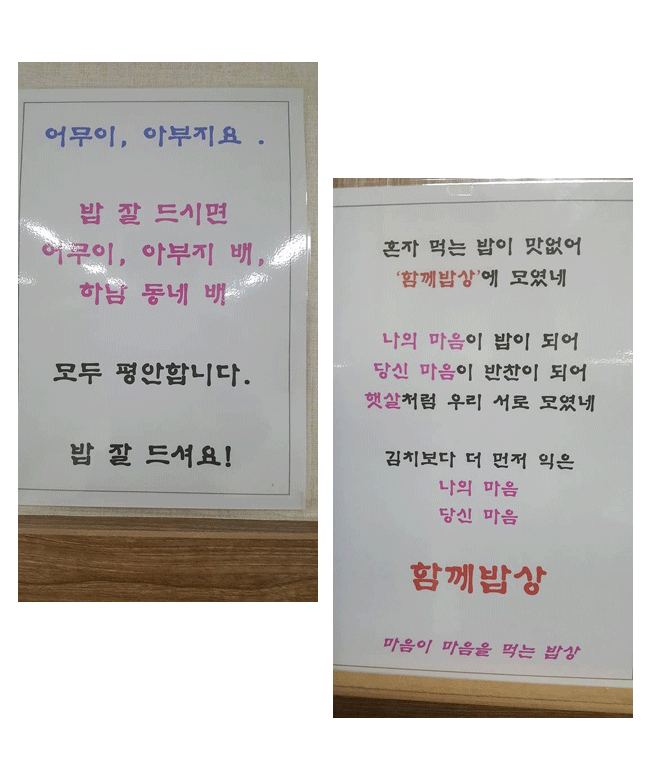 어무이, 아부지요 .
밥 잘 드시면
어무이, 아부지 배,
하남 동네 배
모두 평안합니다.
밥 잘 드셔요!
혼자 먹는 밥이 맛없어
‘함께밥상’에 모였네
나의 마음이 밥이 되어
당신 마음이 반찬이 되어
햇살처럼 우리 서로 모였네
김치보다 더 먼저 익은
나의 마음
당신 마음
함께밥상
마음이 마음을 먹는 밥상